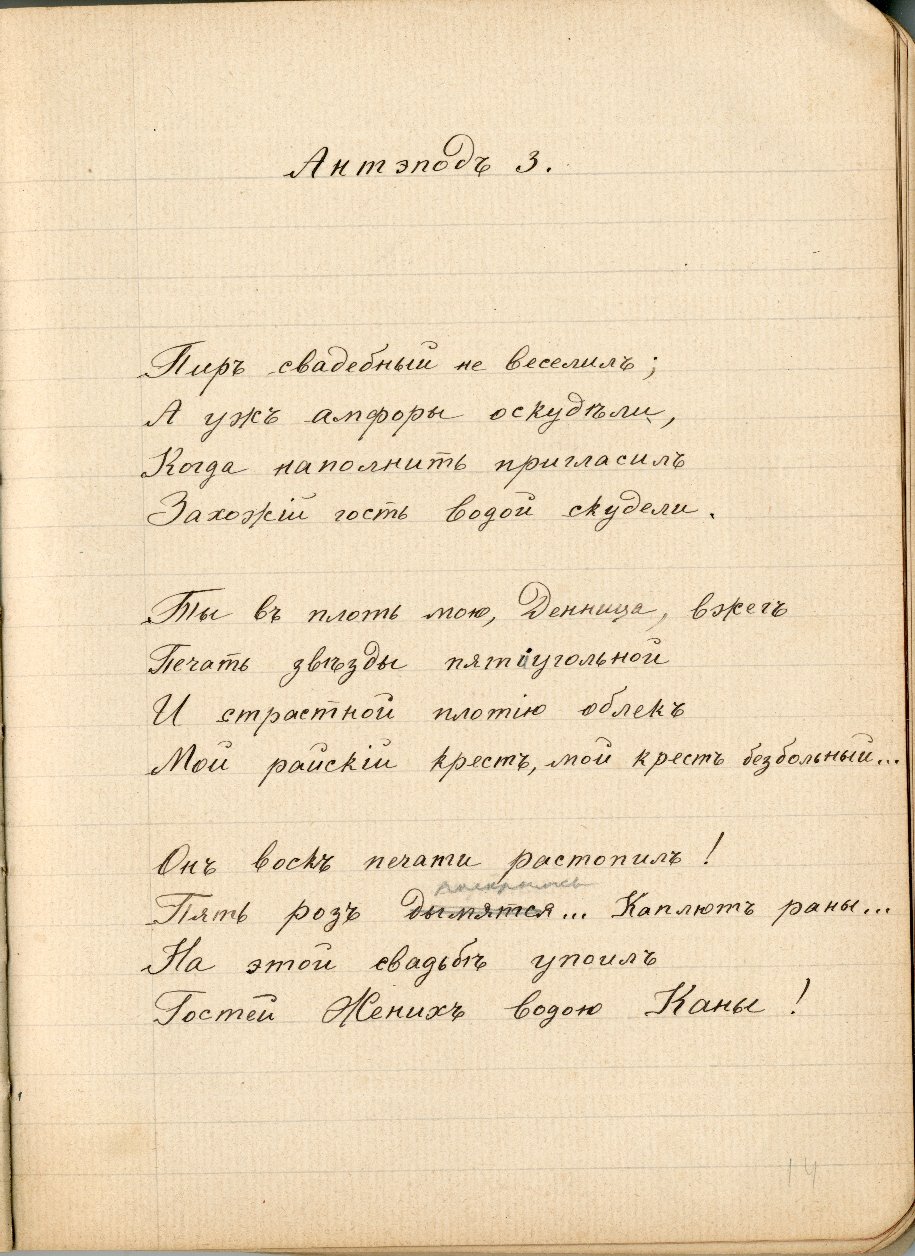 Антэподъ 3.
Пиръ свадебный не веселилъ;
А ужъ амфоры оскудѣли,
Когда наполнить пригласилъ
Захожій гость водой скудели.
Ты въ плоть мою, Денница, вжегъ
Печать звѣзды пятіугольной
И страстной плотію облекъ
Мой райскій крестъ, мой крестъ безбольный...
Онъ воскъ печати растопилъ!
Пять розъ дымятся... Каплютъ раны...
На этой свадьбѣ упоилъ
Гостей Женихъ водою Каны!
14